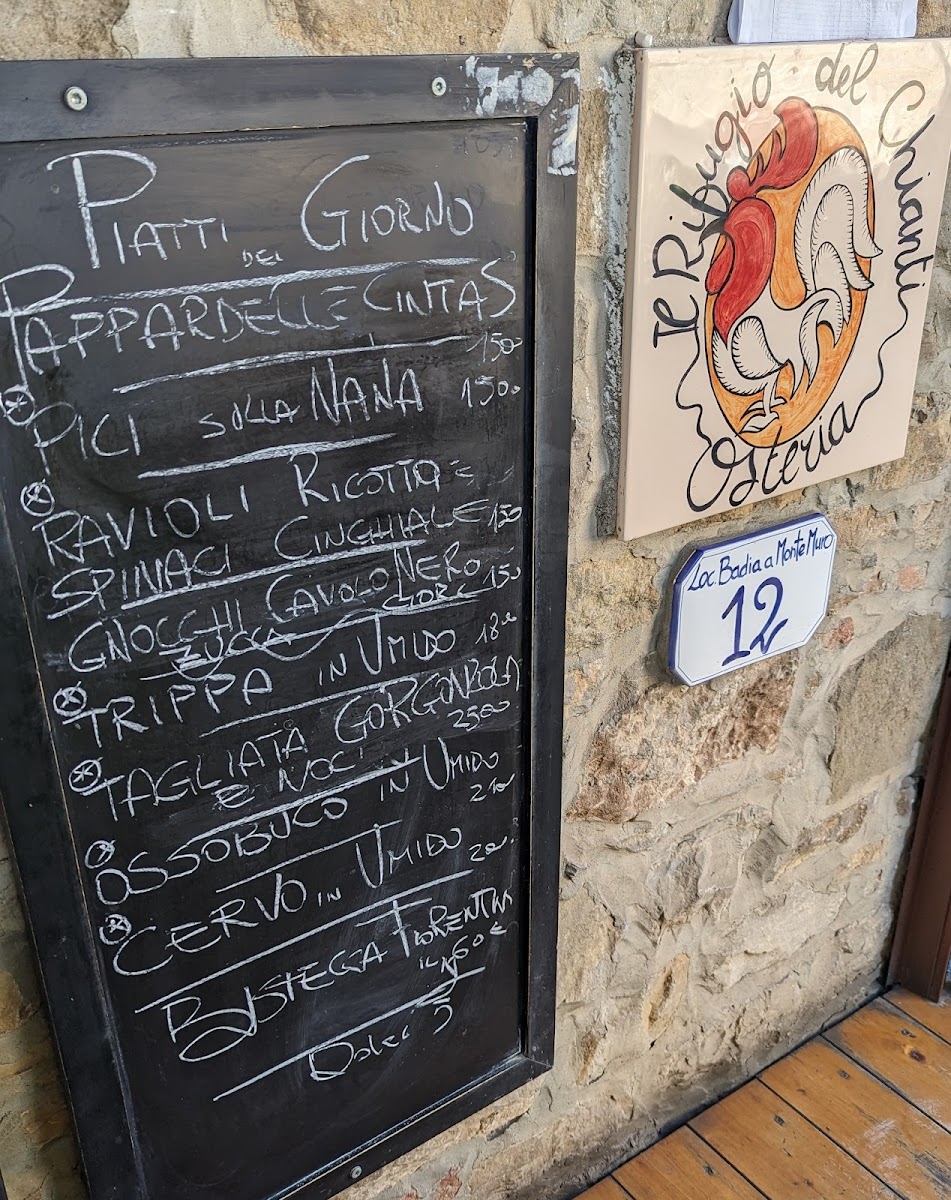 PIATTI DEL GIORNO
PAPPARDELLE CINTAS
1500
PICI SULLA NANA 1500
RAVIOLI RICOTTA E
SPINACI CINGHIALE 150
GNOCCHI CAVOLO NERO
ZUCCA GORG 150
TRIPPA IN UMIDO 18
TAGLIATA GORGONZOLA
E NOCI 2500
OSSOBUCO IN UMIDO
CERVO IN UMIDO
BISTECCA FIORENTINA
IL KG 60 €
Dolci 5
Il Rifugio del Chianti
Osteria
Loc. Badia a MonteMuro
12